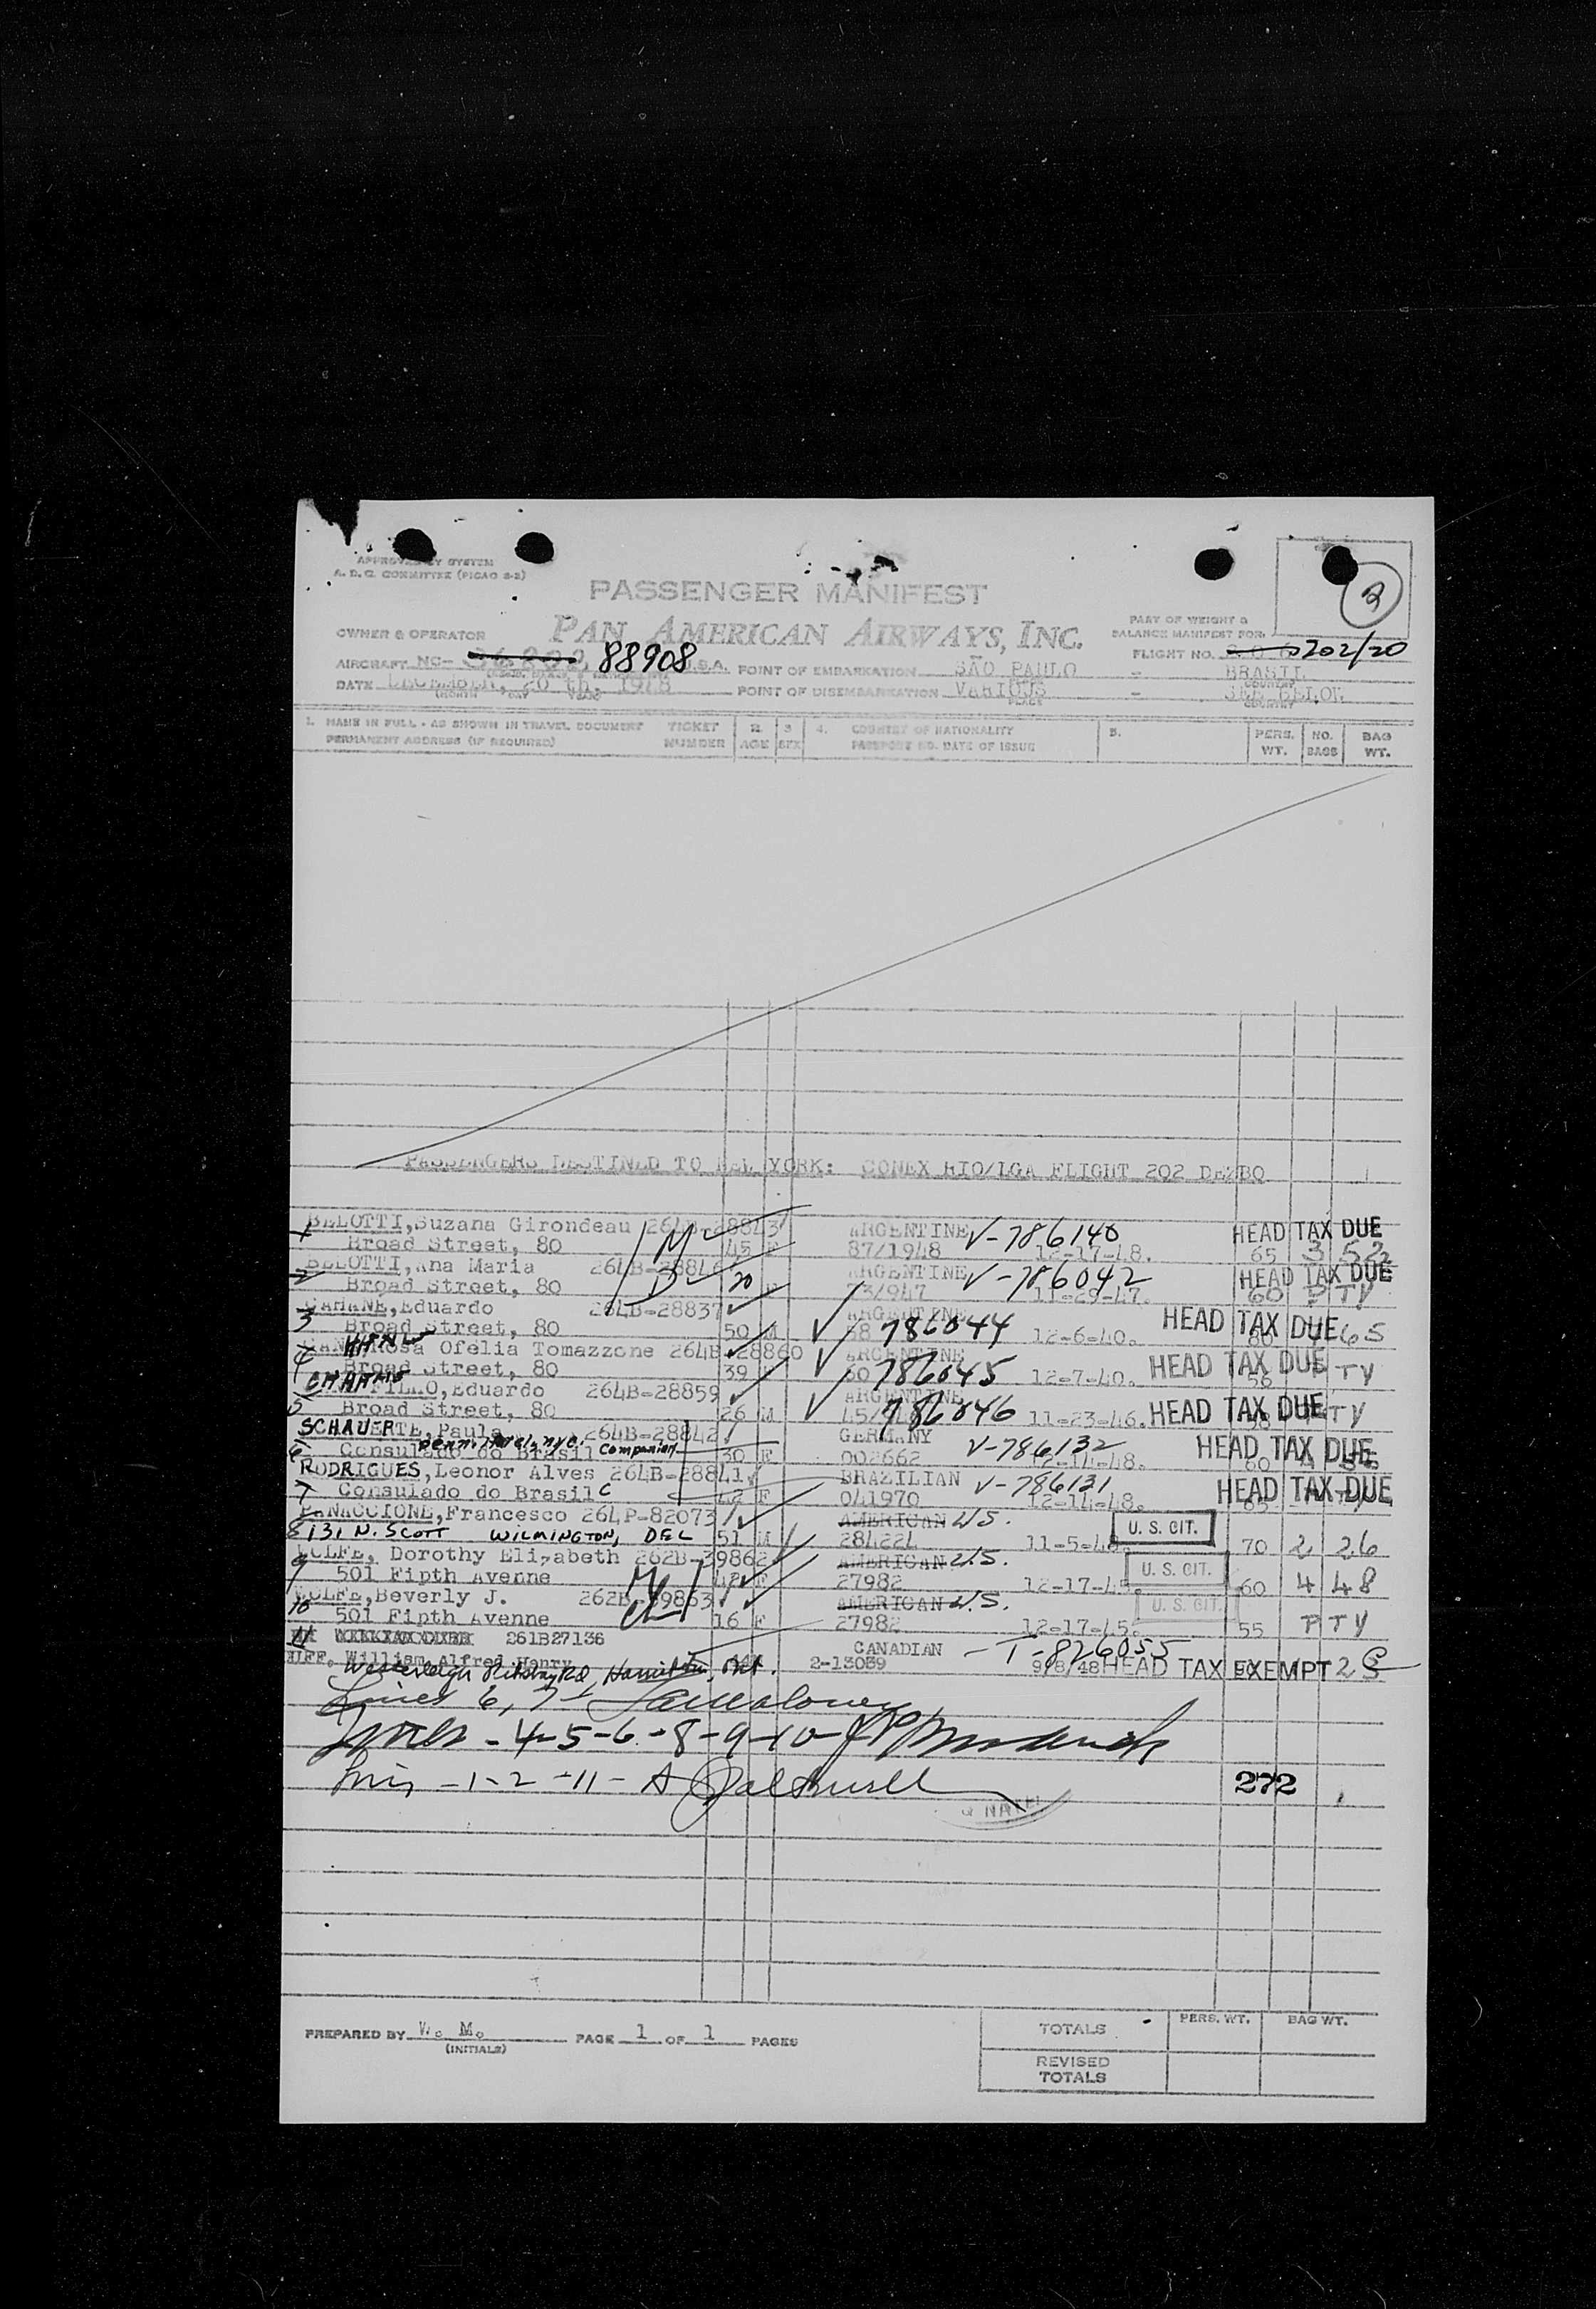 APPROVED BY SYSTEM
A. D. C. COMMITTEE (PICAO 2-2)
2
PASSENGER MANIFEST
OWNER & OPERATOR PAN AMERICAN AIRWAYS, INC.
PART OF WEIGHT &
BALANCE MANIFEST FOR:
AIRCRAFT NC- 88908 U.S.A. POINT OF EMBARKATION SÃO PAULO - BRASIL
FLIGHT NO. 202/20
DATE DECEMBER, 20 th, 1948 POINT OF DISEMBARKATION VARIOUS - SEE BELOW
(MONTH DAY YEAR PLACE COUNTRY
1. NAME IN FULL - AS SHOWN IN TRAVEL DOCUMENT TICKET 2. 3 4. COUNTRY OF NATIONALITY 5. PERS. NO. BAG
PERMANENT ADDRESS (IF REQUIRED) NUMBER AGE SEX PASSPORT NO. DATE OF ISSUE WT. BAGS WT.
PASSENGERS DESTINED TO NEW YORK: CONEX RIO/LGA FLIGHT 202 DEZ20
1 BELOTTI, Suzana Girondeau 264B-28843 ARGENTINE V-786140 HEAD TAX DUE
Broad Street, 80 45 F 87/1948 12-17-48. 65 3 52
2 BELOTTI, Ana Maria 264B-2884 ARGENTINE V-786042 HEAD TAX DUE
Broad Street, 80 20 F 3/947 11-29-47. 60 P TY
3 CAHANE, Eduardo 264B-28837 ARGENTINE 786044 HEAD TAX DUE
Broad Street, 80 50 M 12-6-40. 80 65
4 Rosa Ofelia Tomazzone 264B-28860 ARGENTINE 786045 HEAD TAX DUE
Broad Street, 80 39 F 12-7-40. P TY
5 FILHO, Eduardo 264B-28859 ARGENTINE 786046 HEAD TAX DUE
Broad Street, 80 26 M 11-23-46. TY
6 SCHAUERTE, Paula 264B-28842 GERMANY V-786132 HEAD TAX DUE
Consulado do Brasil Companion 30 F 002662 12-14-48. 60
7 RODRIGUES, Leonor Alves 264B-28841 BRAZILIAN V-786131 HEAD TAX DUE
Consulado do Brasil C 42 F 041970 12-14-48.
8 PANACCIONE, Francesco 264P-82073 AMERICAN U.S. U. S. CIT.
131 N. SCOTT WILMINGTON, DEL 51 M 28422L 11-5-48. 70 2 26
9 WOLFE, Dorothy Elizabeth 262B-39862 AMERICAN U.S. U. S. CIT.
501 Fipth Avenne 42 F 27982 12-17-45. 60 4 48
10 WOLFE, Beverly J. 262B-39863 AMERICAN U.S. U. S. CIT.
501 Fipth Avenne 16 F 27982 12-17-45. 55 P TY
11 261B27136 CANADIAN - T-826055
William Alfred Henry 2-13059 9/8/48 HEAD TAX EXEMPT 2
Lines 6, 7
Lines - 4-5-6-8-9-10-
Lines - 1-2-11-
272
PREPARED BY W. M. PAGE 1 OF 1 PAGES
(INITIALS)
TOTALS PERS. WT. BAG WT.
REVISED
TOTALS